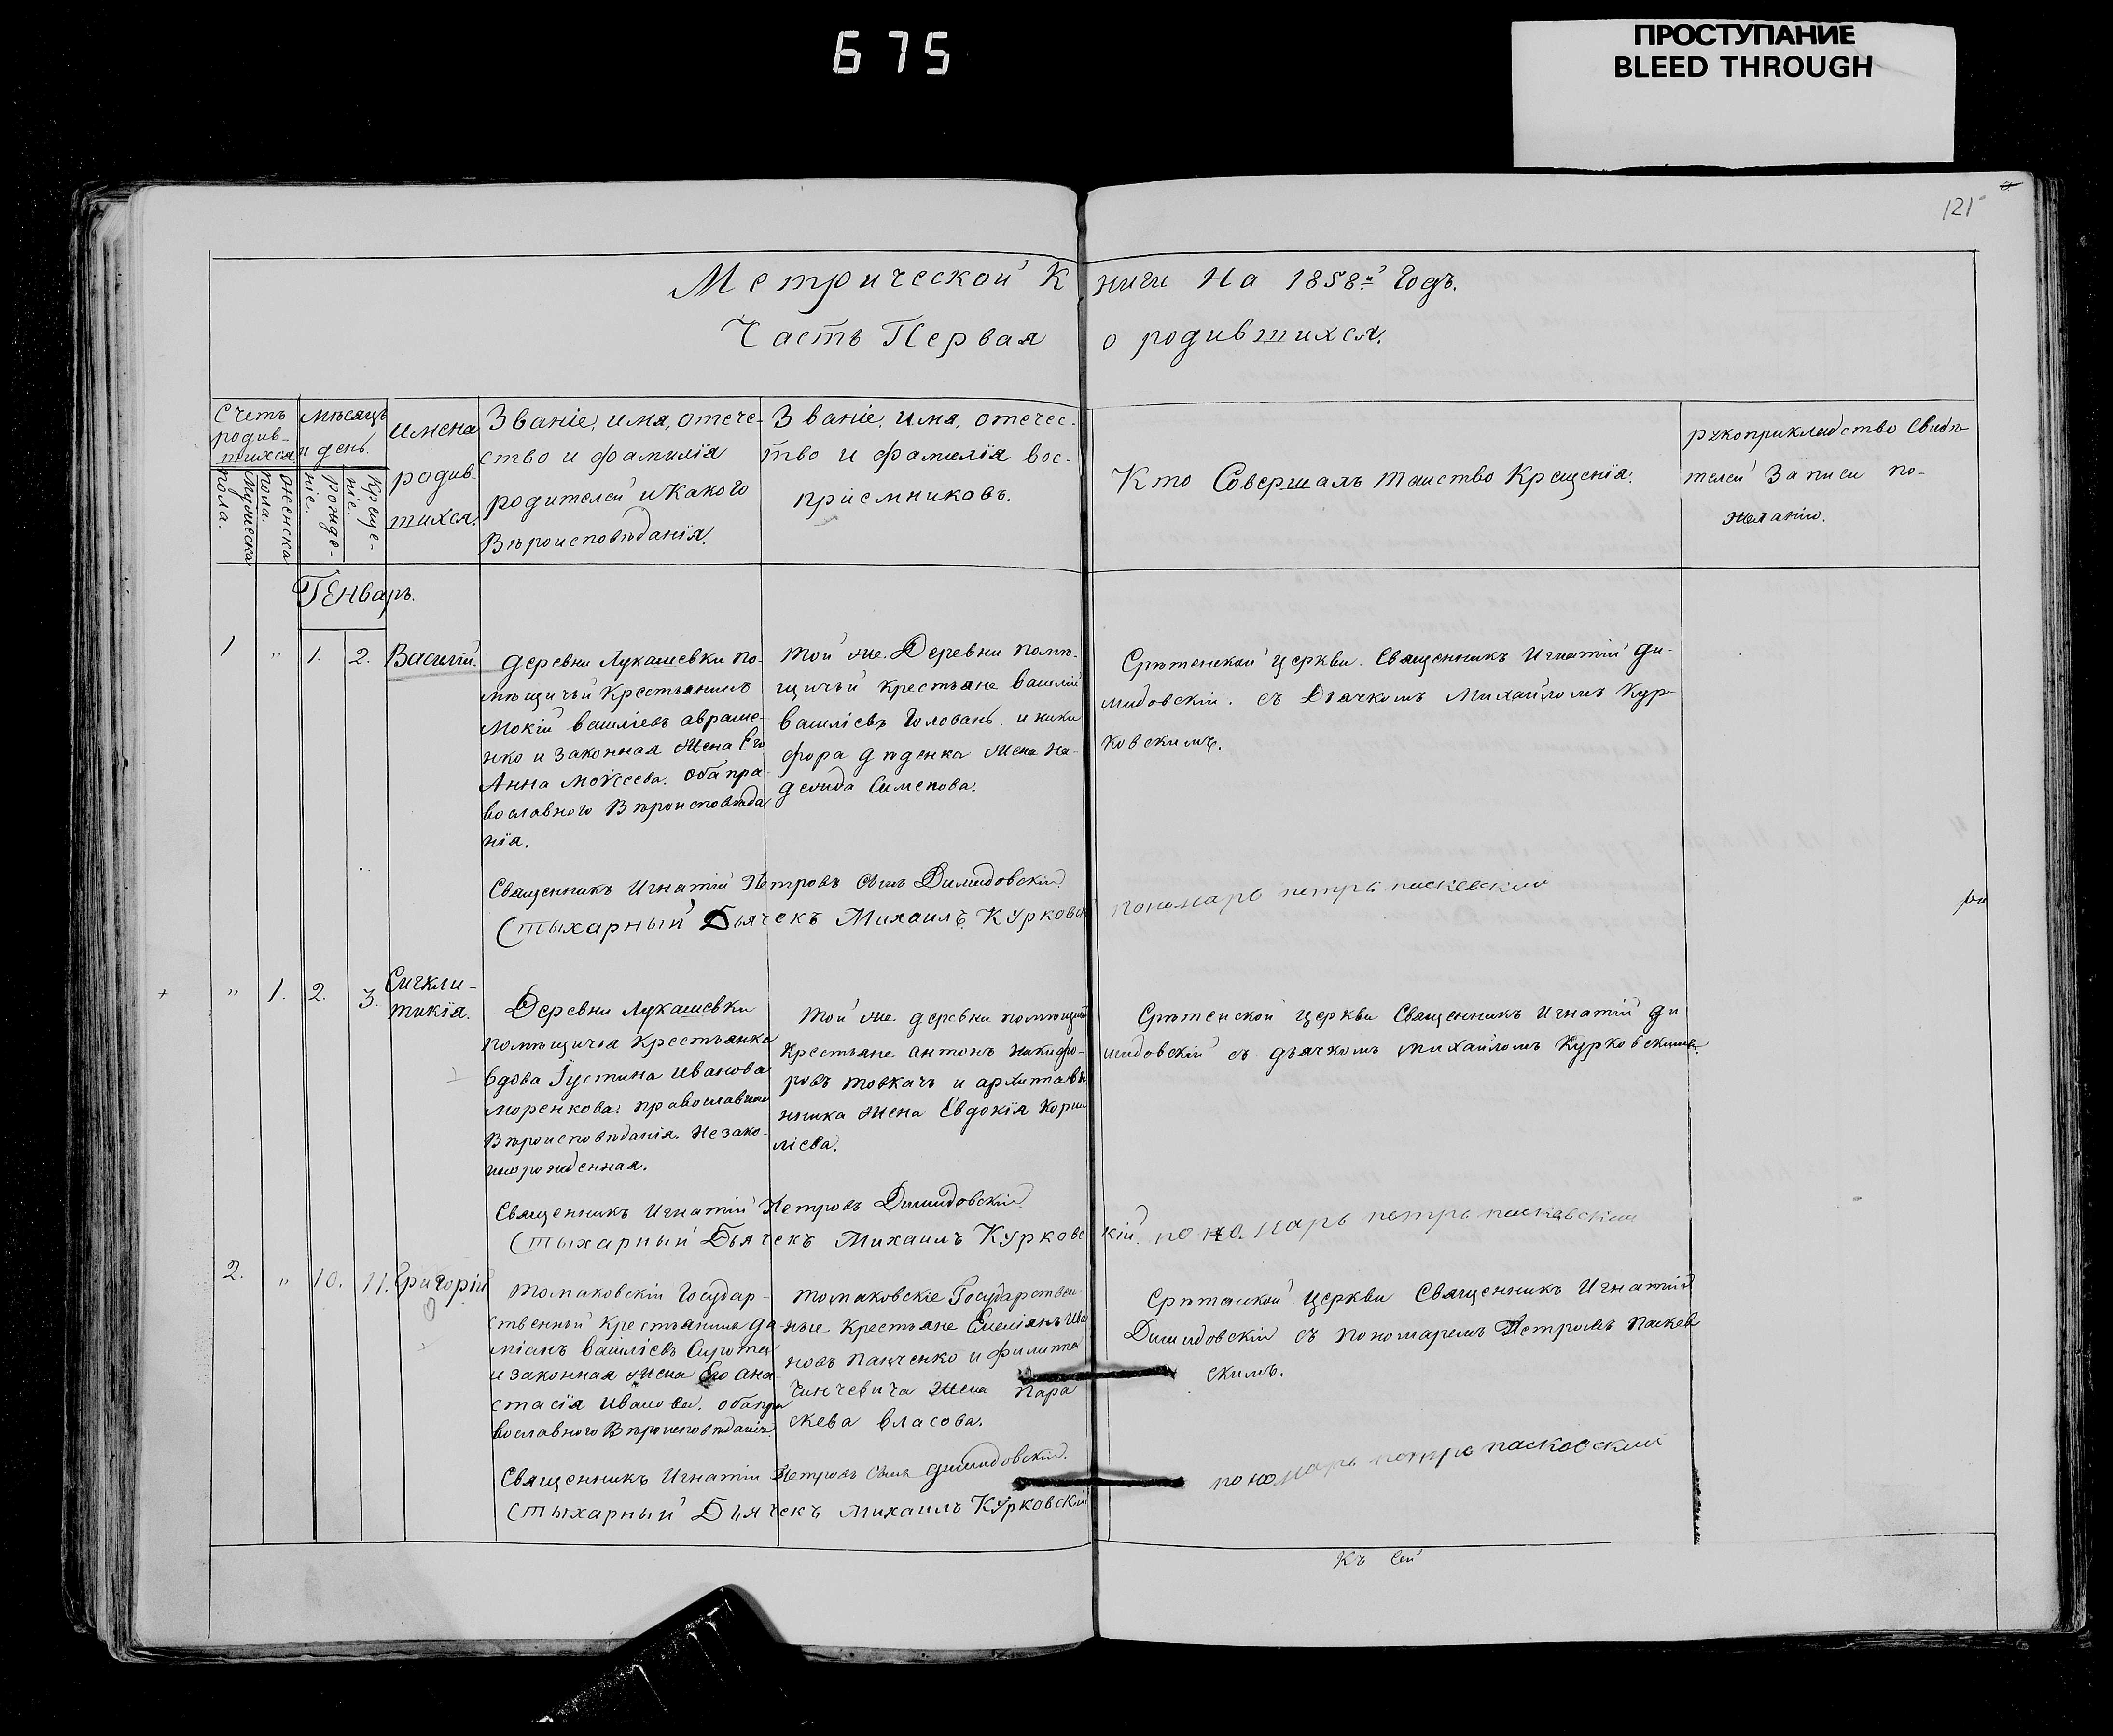 675
ПРОСТУПАНИЕ
BLEED THROUGH
121
Метрической Книги На 1858й Годъ.
Часть Первая о родившихся.
Счетъ родив-шихся
Мужеска пола.
женска пола.
мѣсяцъ и день.
рожде-ніе.
Креще-ніе.
имена
родив-
шихся.
Званіе, имя, отече-
ство и фамилія
родителей и Какого
Вѣроисповѣданія.
Званіе, имя, отечес-
тво и фамилія вос-
пріемниковъ.
Кто Совершалъ таиство Крещенія.
рукоприкладство Свидѣ-
телей Записи по-
желанію.
Генварь.
1 " 1. 2. Василій.
Деревни Лукашевки по-
мѣщичьй Крестьянинъ
Мокій василіевъ авраме-
нко и Законная жена Его
Анна Мокеева. оба пра-
вославного Вѣроисповѣда
нія.
Той же Деревни помѣ-
щичьй крестьяне василій
василіевъ Головань и ники
фора дѣденка жена На-
дежда Сименова.
Срѣтенской церкви Священникъ Игнатій Ди-
мидовскій. съ Дьячкомъ Михайломъ Кур-
ковскимъ.
Священникъ Игнатій Петровъ Сынъ Димидовскій
Стыхарный Дьячекъ Михаилъ Курковск
пономарь петръ паскевский
" 1. 2. 3. Сигкли-
тикія.
Деревни Лукашевки
помѣщичья Крестьянка
вдова Іустина Иванова
моренкова. православного
Вѣроисповѣданія. Незако-
норожденная.
Той же деревни помѣщичьи
Крестьяне антонъ никифо-
ровъ товкачъ и
жена Евдокія Корни
ліева.
Срѣтенской церкви Священникъ Игнатій Ди
мидовскій съ дьячкомъ михайломъ Курковскимъ.
Священникъ Игнатій Петровъ Димидовскій
Стыхарный Дьячекъ Михаилъ Курковскій.
пономарь петръ паскевский
2. " 10. 11. Григорій
Томаковскій Государ-
ственный Крестьянинъ да
міанъ василіевъ Сирота
и законная жена Его ана-
стасія Иванова. оба пра
вославного Вѣроисповѣданія.
томаковскіе Государствен-
ные Крестьяне Емеліянъ Ива
новъ панченко и филиппа
жена Пара
скева власова.
Срѣтенской церкви Священникъ Игнатій
Димидовскій съ пономаремъ Петромъ паскев
скимъ.
Священникъ Игнатій Петровъ Сынъ Димидовскій.
Стыхарный Дьячекъ Михаилъ Курковскій
пономарь петръ пасковский
Къ Сей